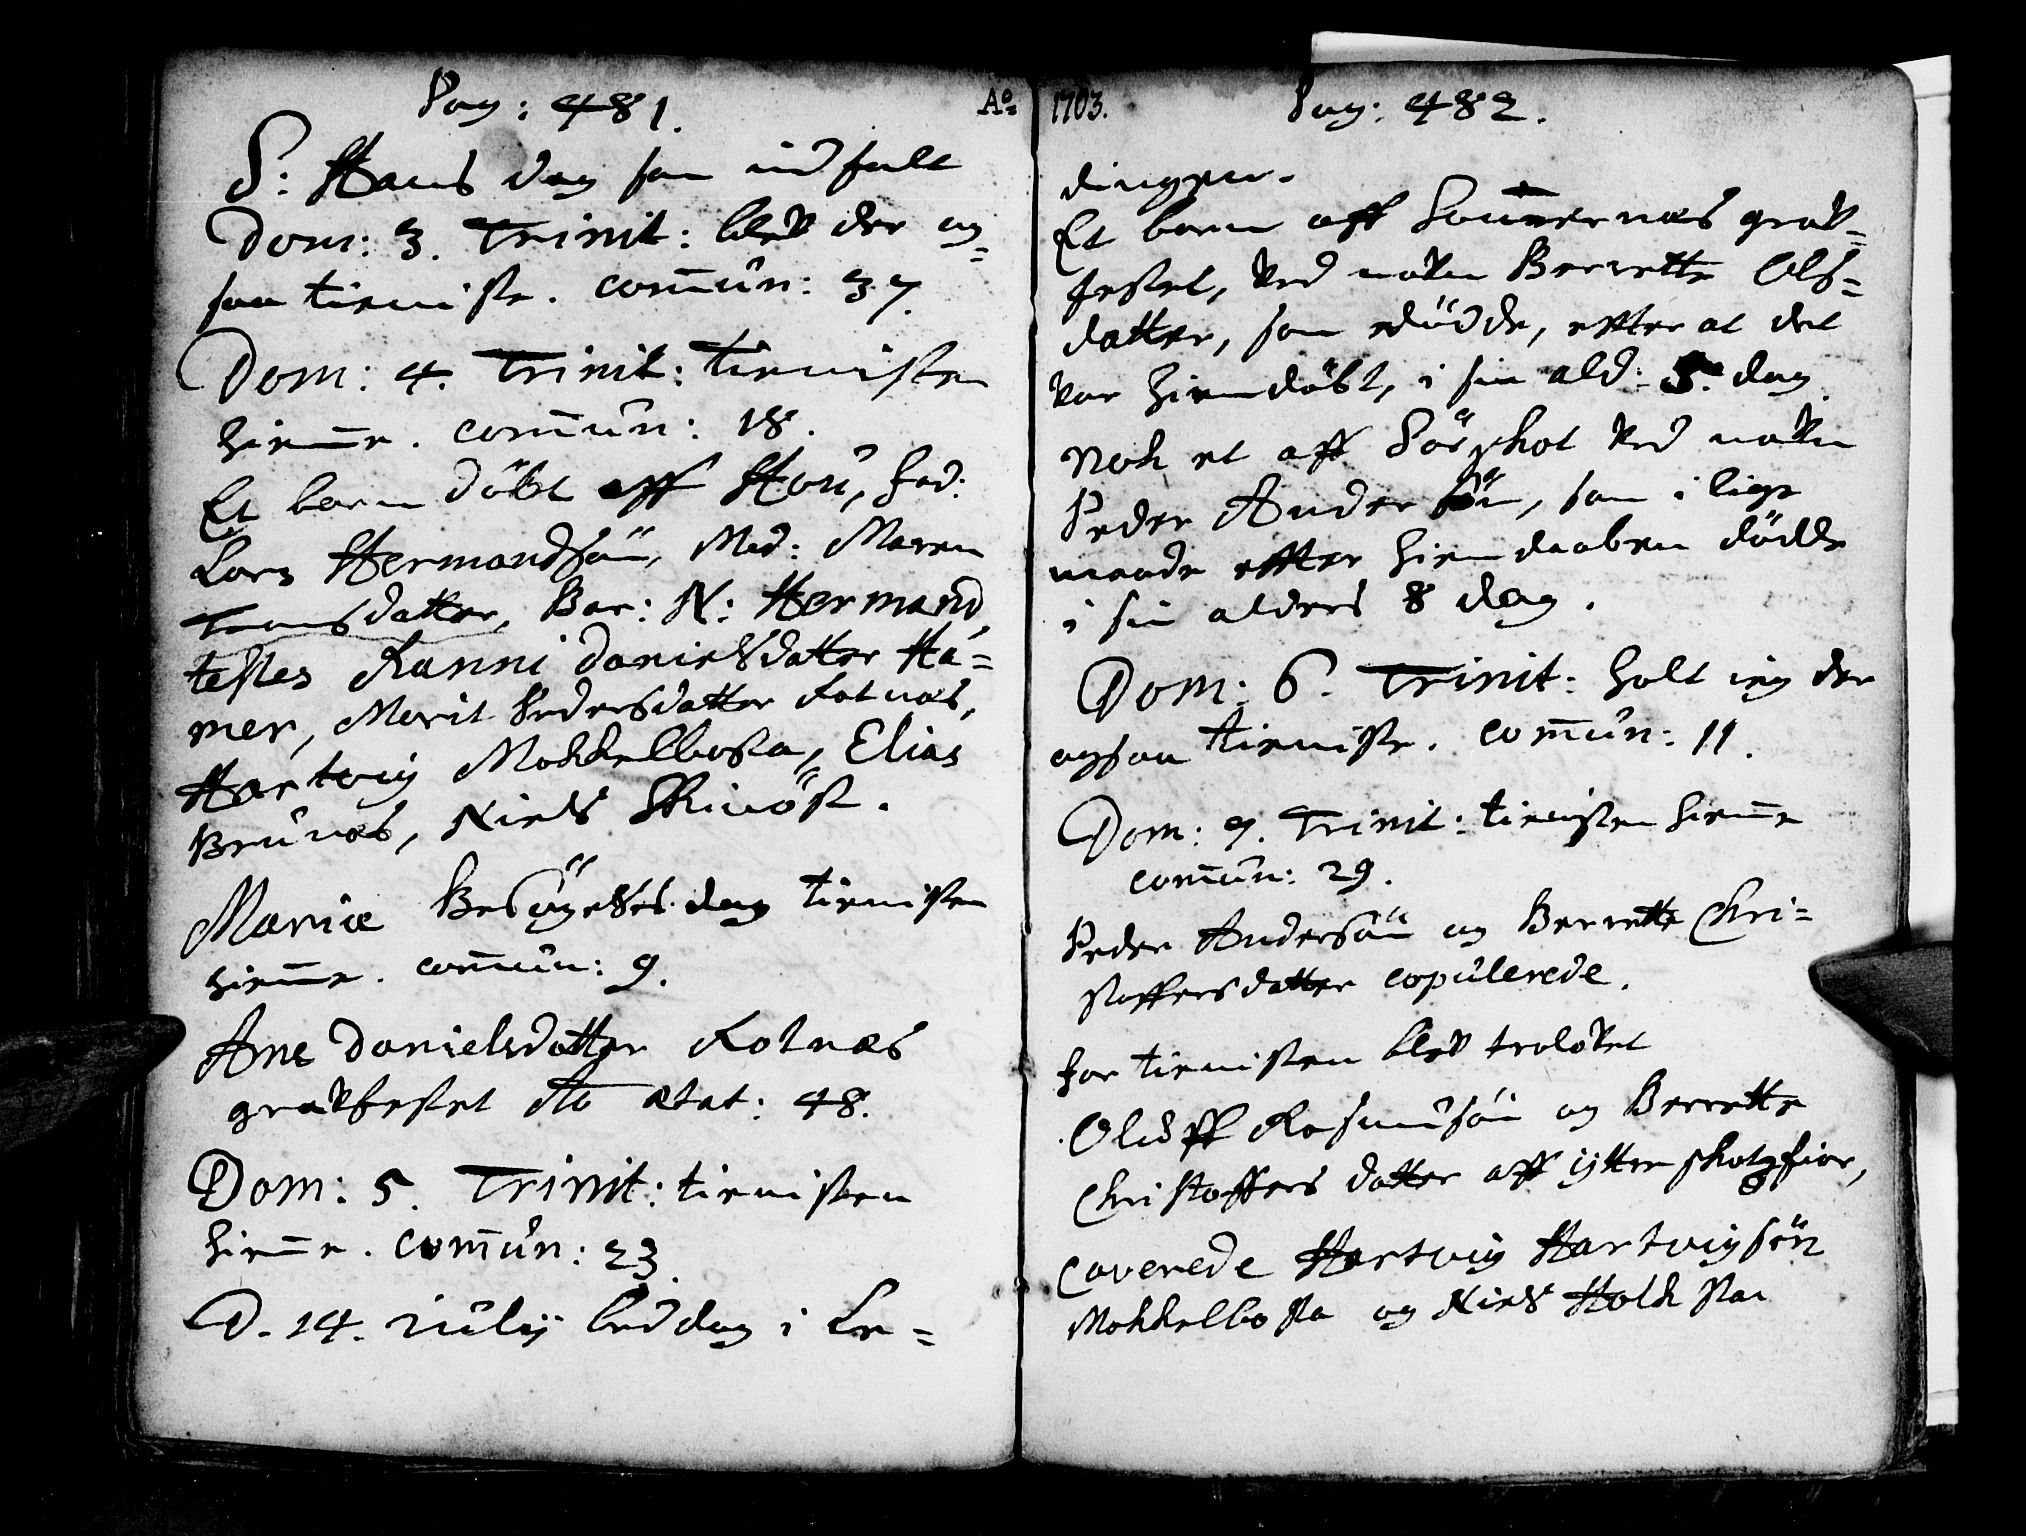 Pag: 481.
S: Hans dag som indfalt
Dom: 3. Trinit: blev der og=
saa tieniste. com̄un: 37.
Dom: 4. Trinit: tienisten
hiem̄e. com̄un: 18.
Et barn döbt aff Hou, Fad:
Lars Hermandsön, Mod: Maren
Tomsdatter, Bar: N: Hermand,
testes Ranni Danielsdatter Ha=
mer, Marit Pedersdatter Kolnæs,
Hartvig Mokkelbosta, Elias
Brunæs, Niels Skinöst.
Mariæ Besögelses dag tienisten
hiem̄e. com̄un: 9.
Ane Danielsdatter Kolnæs
gravfestet Ao ætat: 48.
Dom: 5. Trinit: tienisten
hiem̄e. com̄un: 23.
D. 14. iulij beddag i Le=
Ao 1703.
Pag: 482.
dingen.
Et barn aff Som̄ernæs grav=
festet, ved navn Berrette Ols=
datter, som dödde, effter at det
var hiemdöbt, i sin ald: 5. dag.
Nok et aff Sörskot ved navn
Peder Andersön, som i lige
maade effter hiemdaaben dödde
i sin alders 8 dag.
Dom: 6. Trinit: holt ieg der
ogsaa tieniste. com̄un: 11.
Dom: 7. Trinit: tienisten hiem̄e
com̄un: 29.
Peder Andersön og Berrette Chri=
stoffersdatter copulerede.
For tienisten blev trolovet
Oluff Rasmusön og Berrette
Christoffers datter aff ijtterskotzfior,
Caverede Hartvig Hartvigsön
Mokkelbosta og Niels Holkesta